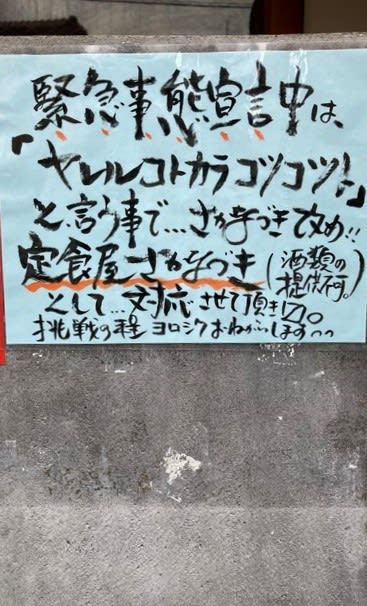 緊急事態宣言中は、
「ヤレルコトカラコツコツ!」
と言う事で…さかなづき改め!!
定食屋さかなづき(酒類の提供不可。)
として…対応させて頂き〼。
挑戦の程ヨロシクおねがいします〜